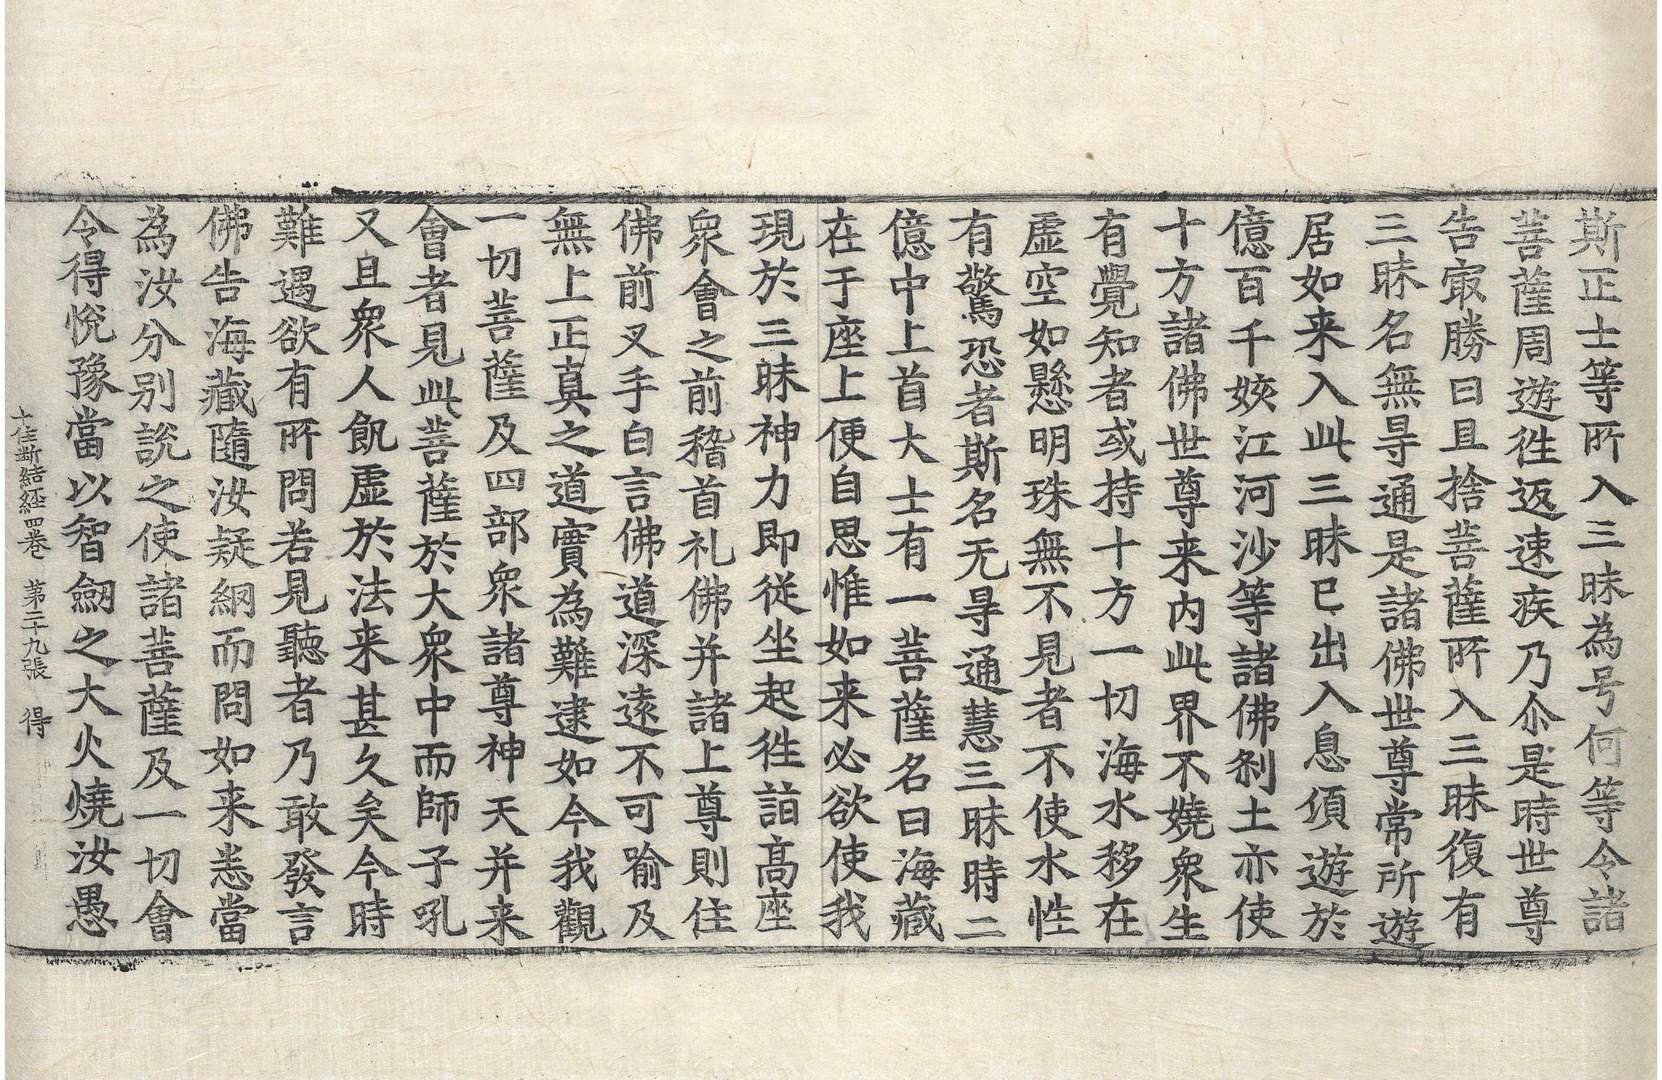 斯正士等所入三昧為号何等令諸
菩薩周遊徃返速疾乃尒是時世尊
告㝡勝曰且捨菩薩所入三昧復有
三昧名無㝵通是諸佛世尊常所遊
居如来入此三昧已出入息須遊於
億百千姟江河沙等諸佛刹土亦使
十方諸佛世尊来内此界不嬈衆生
有覺知者或持十方一切海水移在
虛空如懸明珠無不見者不使水性
有驚恐者斯名无㝵通慧三昧時二
億中上首大士有一菩薩名曰海藏
在于座上便自思惟如来必欲使我
現於三昧神力即從坐起徃詣高座
衆會之前稽首礼佛并諸上尊則住
佛前叉手白言佛道深遠不可喻及
無上正真之道實為難逮如今我觀
一切菩薩及四部衆諸尊神天并来
會者見此菩薩於大衆中而師子吼
又且衆人飢虛於法来甚久矣今時
難遇欲有所問若見聽者乃敢發言
佛告海藏隨汝疑網而問如来恚當
為汝分別說之使諸菩薩及一切會
令得悅豫當以智劒之大火燒汝愚
十住斷結經四卷 第二十九張 得